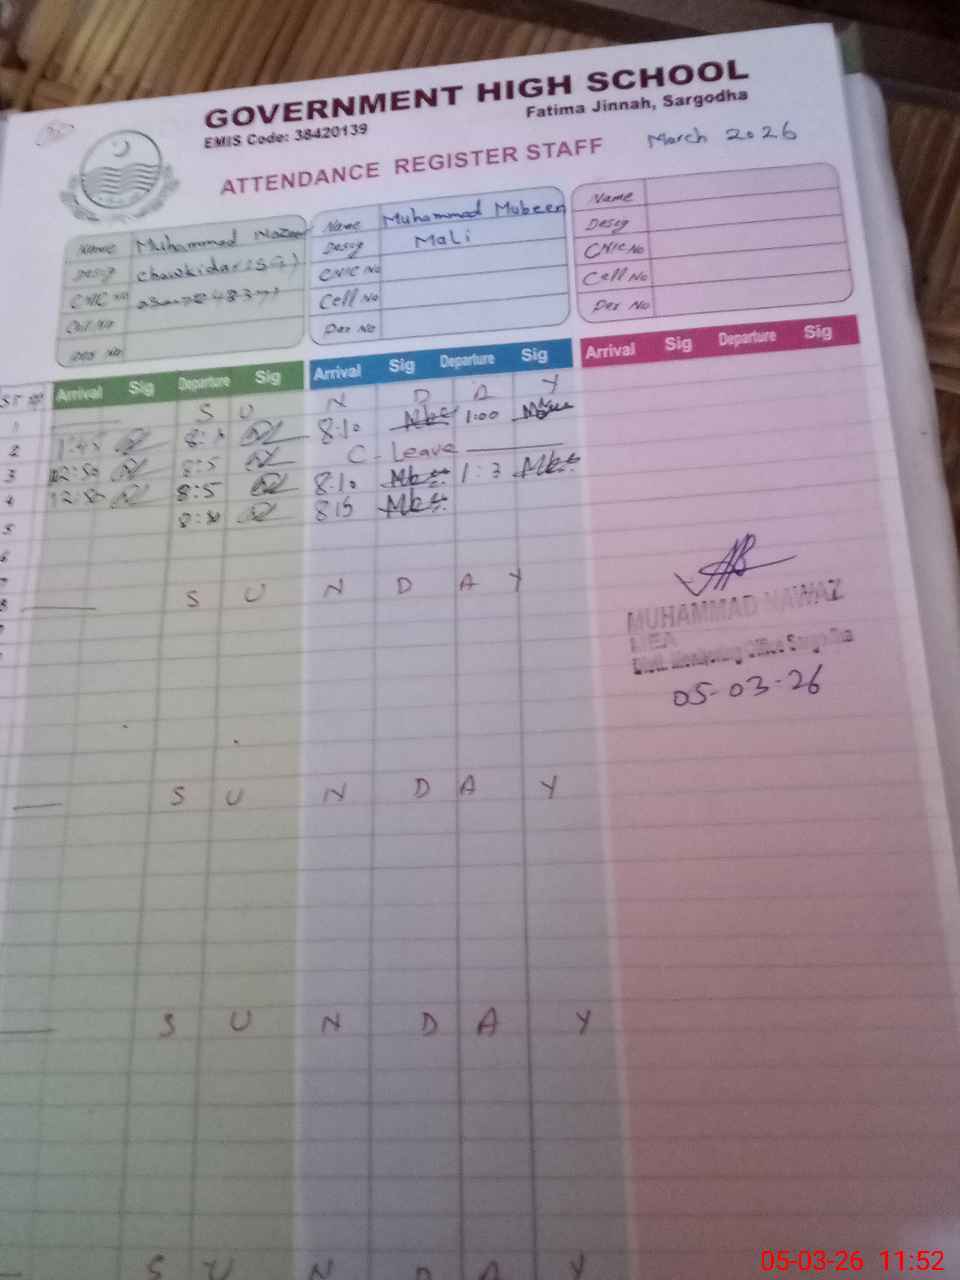 GOVERNMENT HIGH SCHOOL
Fatima Jinnah, Sargodha
EMIS Code: 38420139
ATTENDANCE REGISTER STAFF March 2026
Name Muhammad Nazeer
Desig Chowkidar (SG)
CNIC No
Cell No
Per No
Name Muhammad Mubeen
Desig Mali
CNIC No
Cell No
Per No
Name
Desig
CNIC No
Cell No
Per No
Arrival Sig Departure Sig Arrival Sig Departure Sig Arrival Sig Departure Sig
1 S U N D A Y
2 1:45 8:10 1:00
3 12:50 8:5 C-Leave
4 12:50 8:5 8:10 1:3
5 8:30 8:15
6
7
8 S U N D A Y
MUHAMMAD NAWAZ
MEA
Distt. Monitoring Office Sargodha
05-03-26
S U N D A Y
S U N D A Y
S U N D A Y
05-03-26 11:52